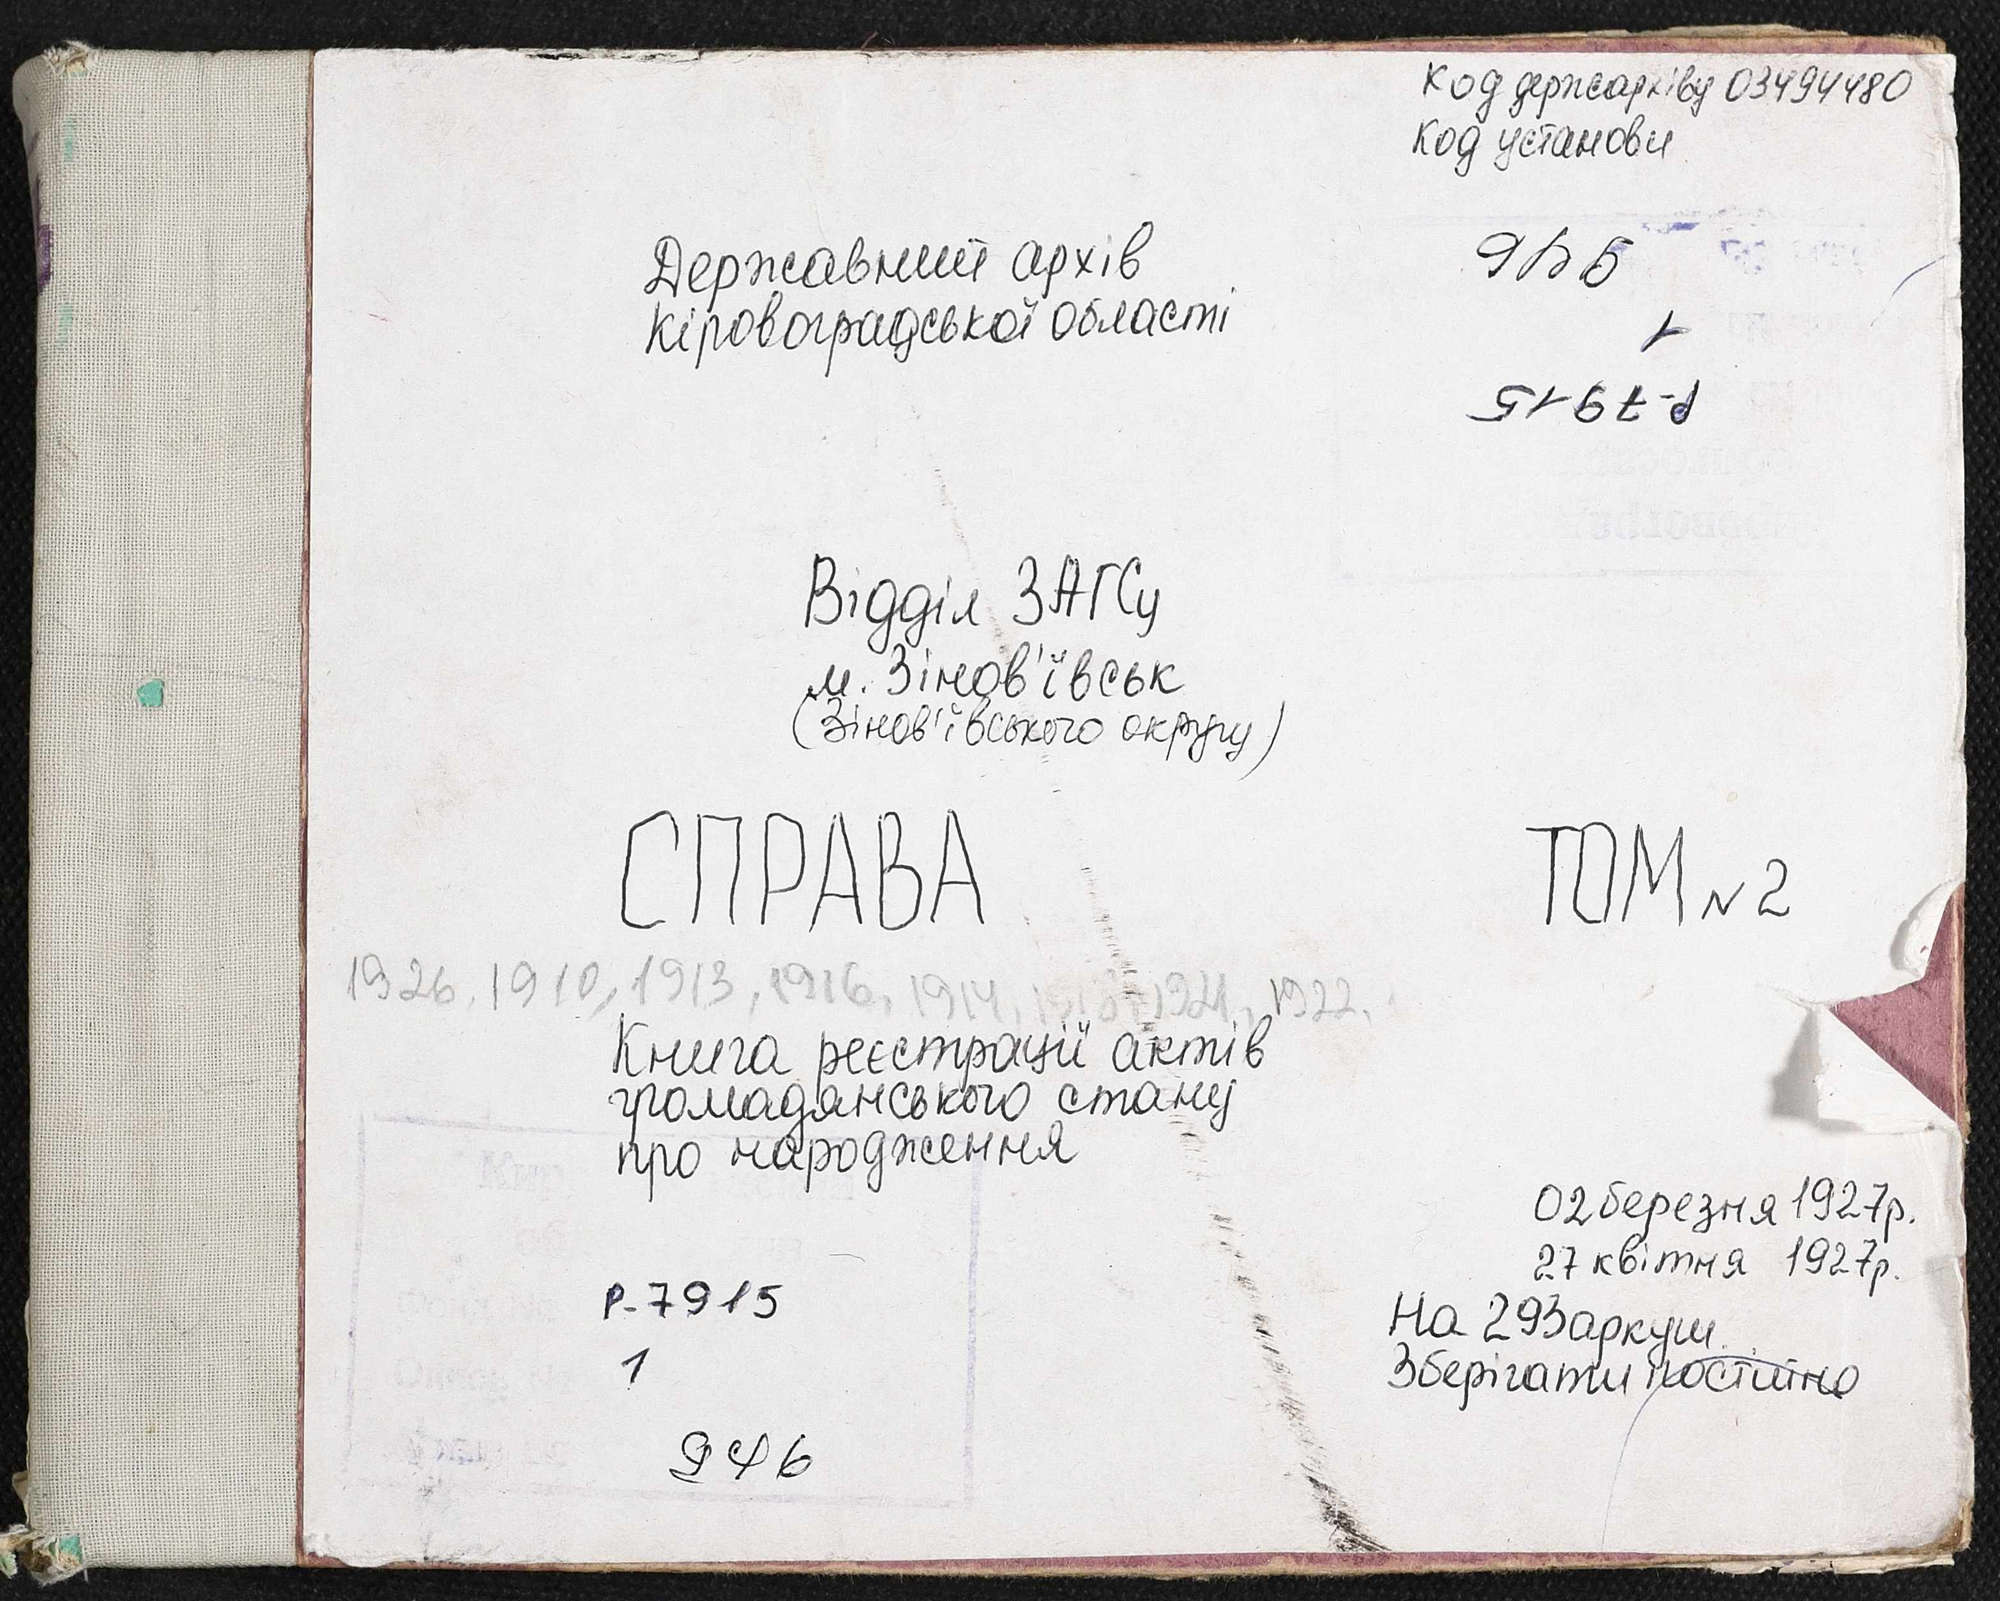 Код держархіву 03494480
Код установи
946
1
Р-7915
Державний архів
Кіровоградської області
Відділ ЗАГСу
м. Зінов'ївськ
(Зінов'ївського округу)
СПРАВА
ТОМ N 2
1926, 1910, 1913, 1916, 1914, 1921, 1922,
Книга реєстрації актів
громадянського стану
про народження
02 березня 1927р.
27 квітня 1927р.
На 293 аркуш
Зберігати постійно
Р-7915
1
946